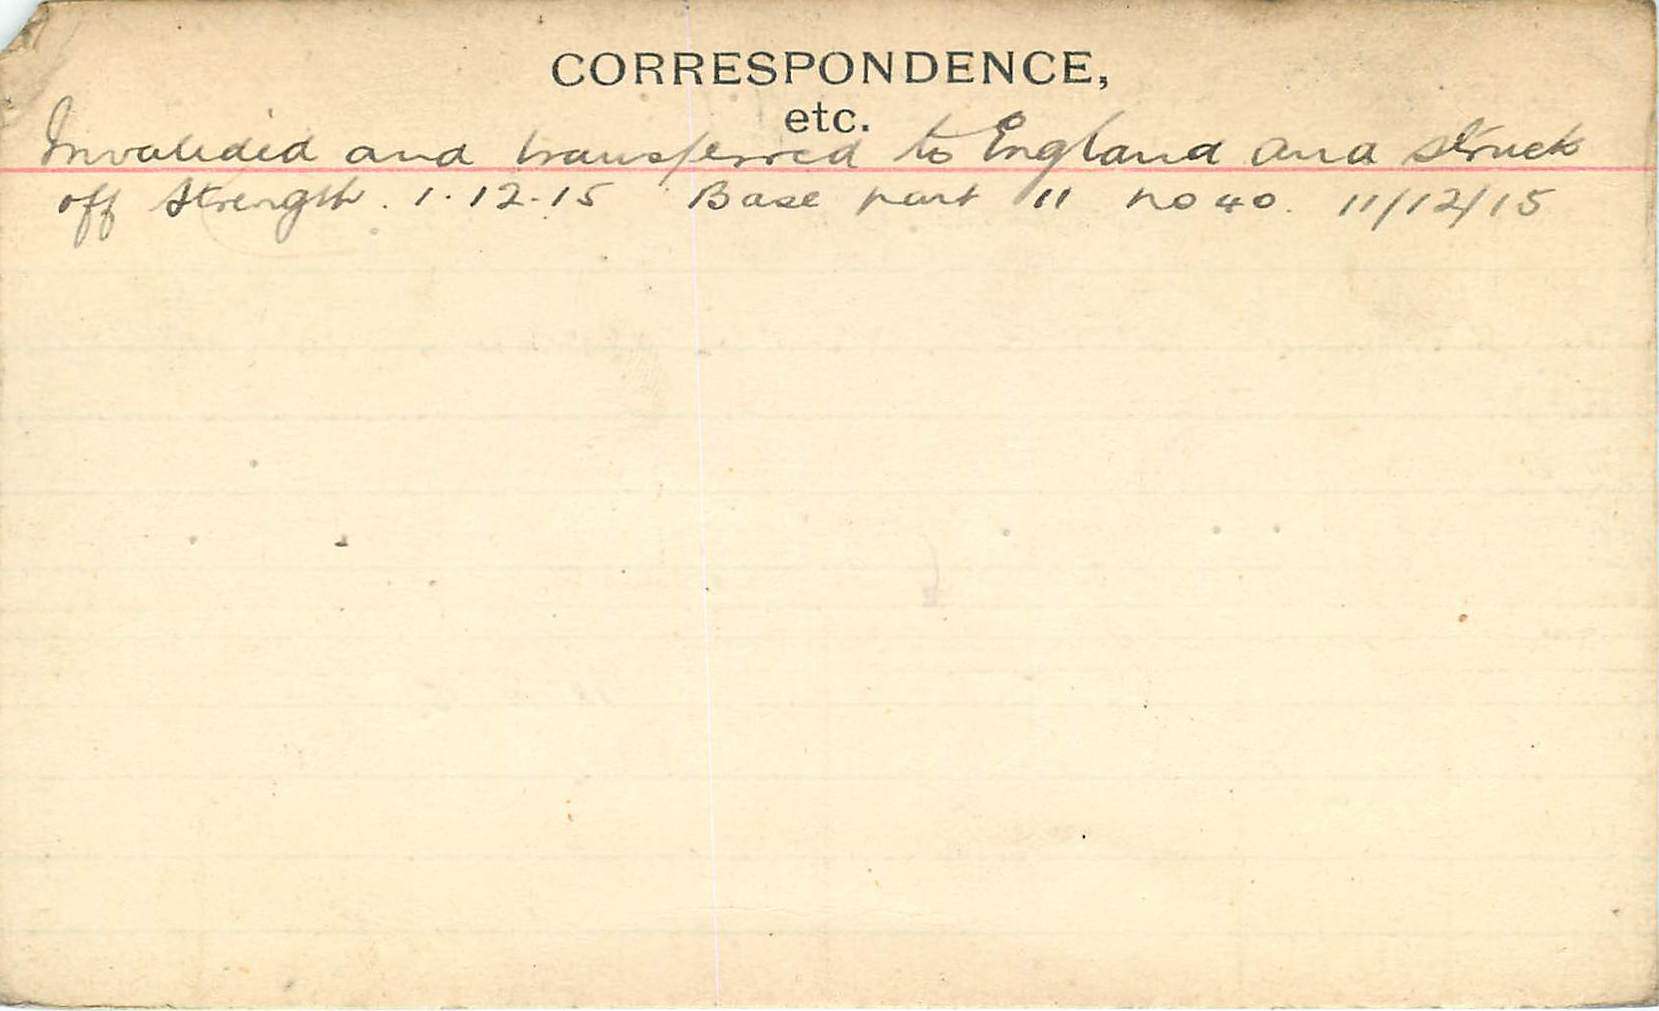 CORRESPONDENCE,
etc.
Invalided and transferred to England and struck
off strength. 1.12.15 Base part 11 no 40. 11/12/15